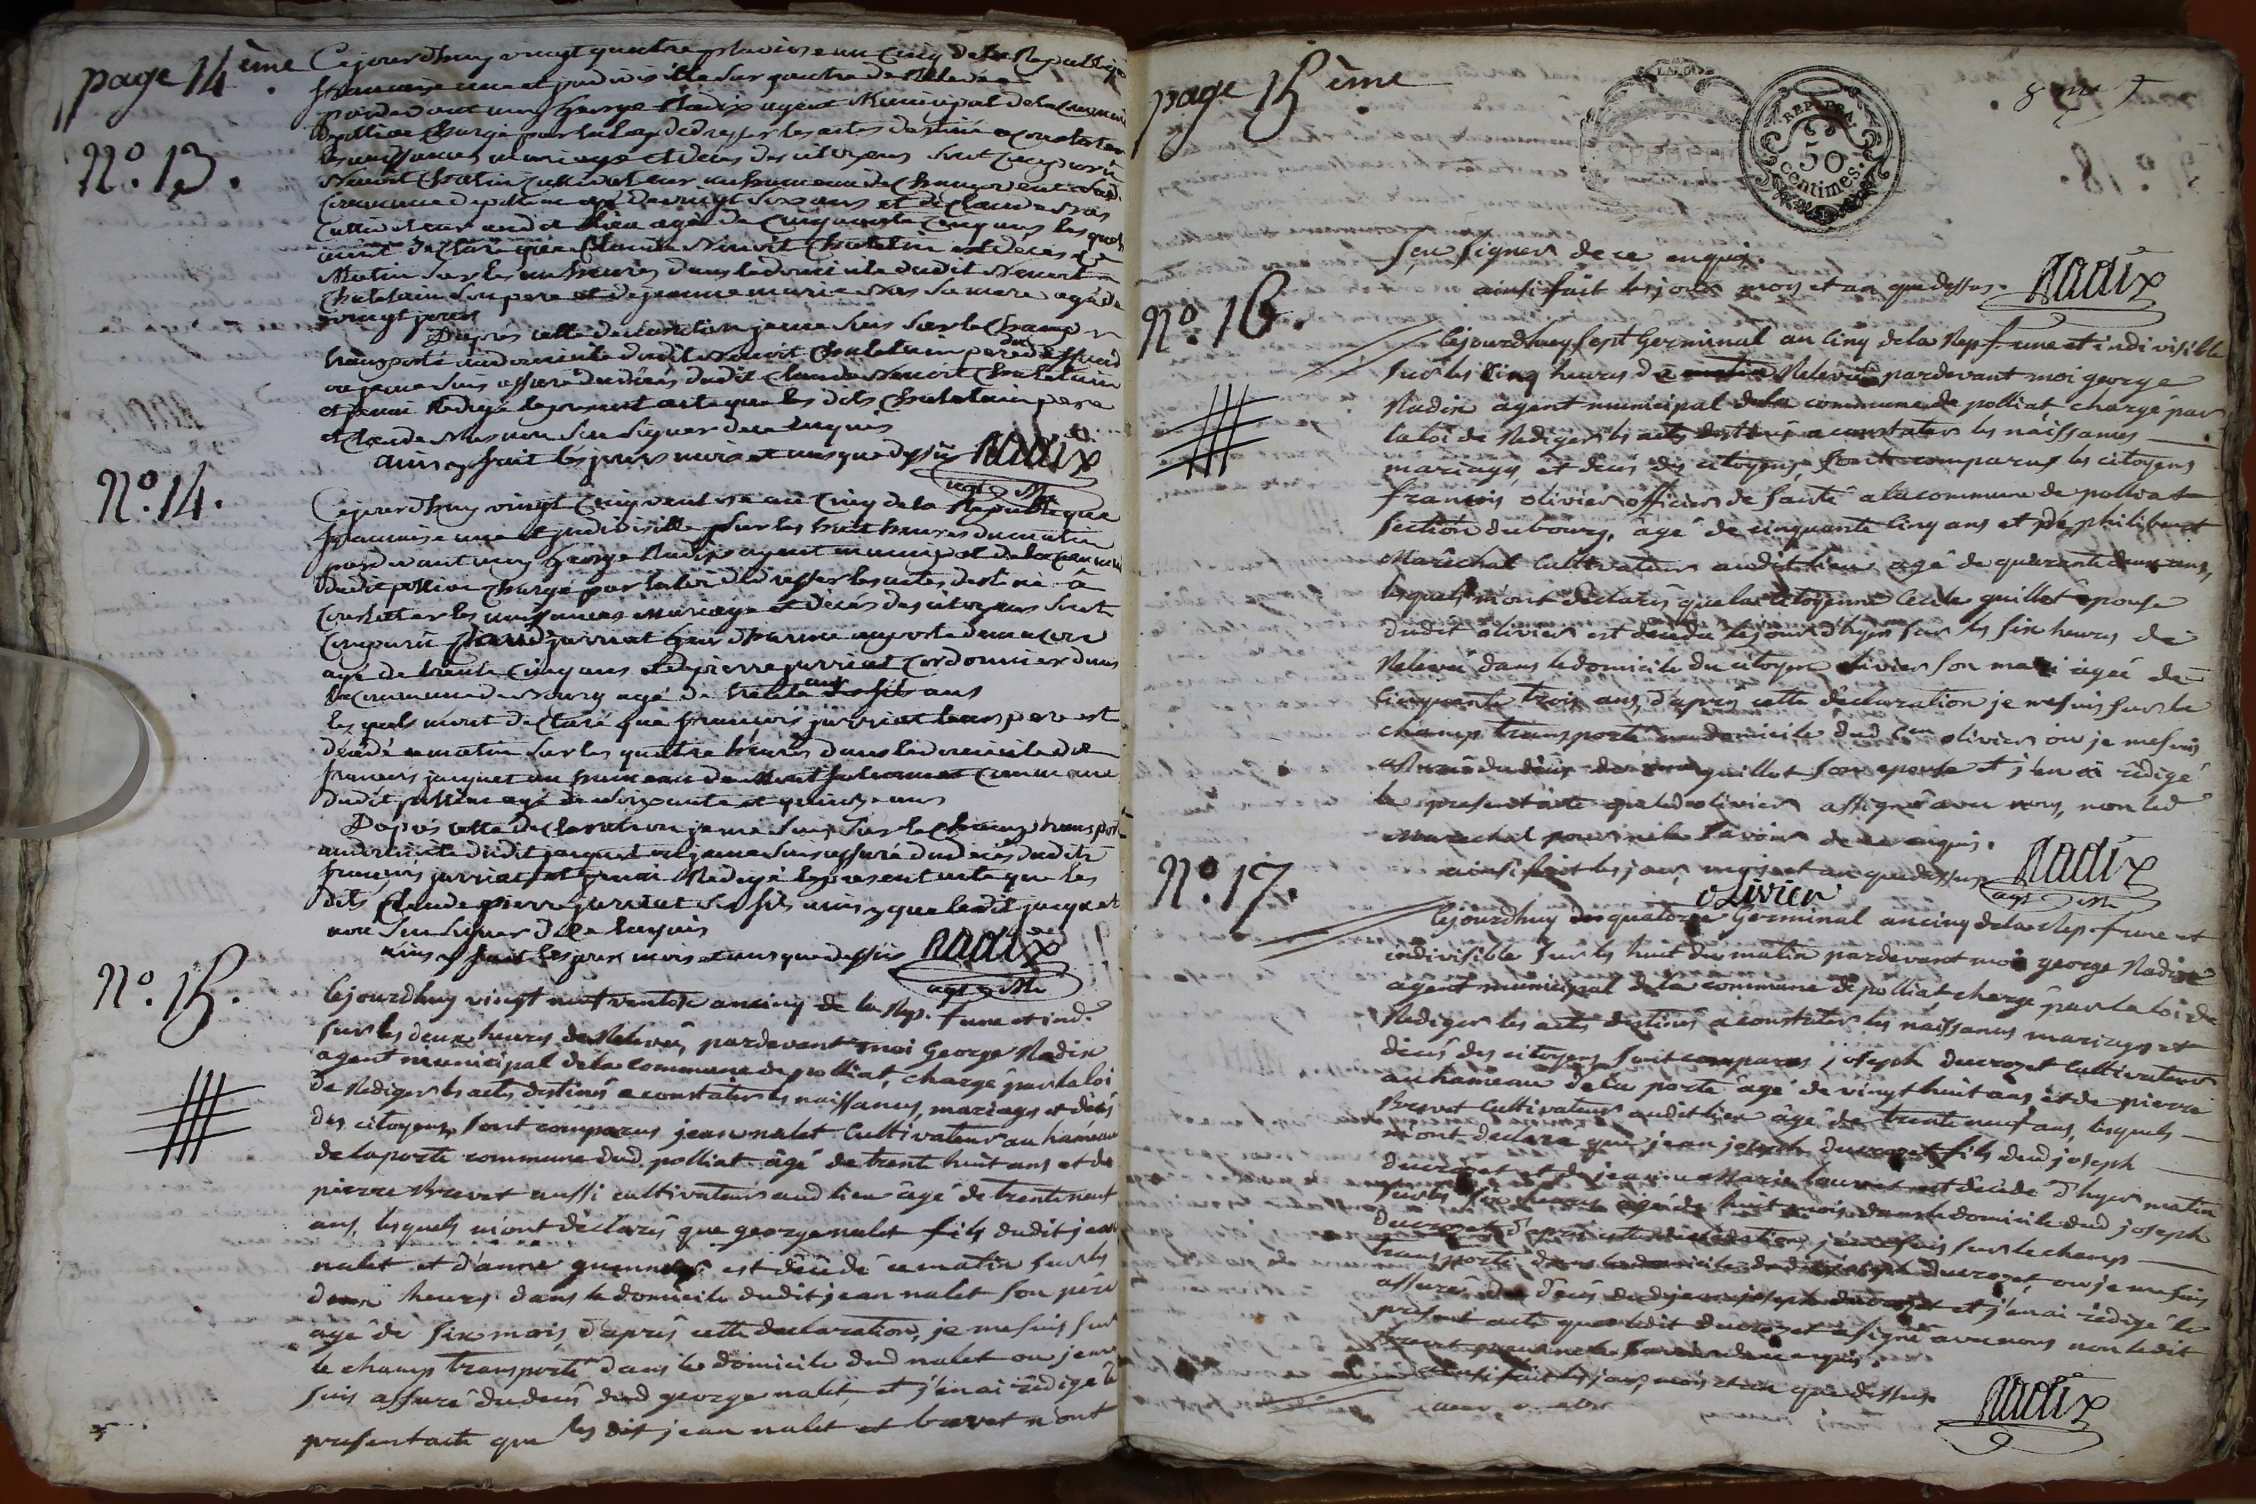 page 14 ème
Cejourdhuy vingt quatre pluviose an cinq de la Republiq
francaise une et indivisible sur quatre de Relevée
pardevant moy George Radix agent Municipal de la Commune
de polliat Chargé par la loy de dresser les actes destiné a constater
les naissances mariage et décès des citoyens sont comparu
Benoit Chatelain cultivateur au hameau de
Commune de polliat agé de vingt six ans et de Claude Mas
Cultivateur audit lieu agé de Cinquante Cinq ans les quels
mont declaré que Claude Benoit Chatelain est décès ce
Matin sur les heures dans le domicile dudit Benoit
Chatelain son pere et de jeanne marie Mas sa mere agé de
vingt jours
D'apres cette declaration je me suis sur le Champ
transporté au domicile dudit Benoit Chatelain pere du
ou je me suis assuré du décès dudit Claude Benoit Chatelain
et jenai Redigé le present acte que les dits Chatelain pere
et Claude Mas non Su Signer de ce Enquis
ainsy fait les jours mois et ans que dessus Radix
agt Mal
Nº. 13.
Nº. 14.
Cejourdhuy vingt Cinq ventose an Cinq de la Republique
francaise une et indivisible sur les huit heures du matin
pardevant moy George Radix agent municipal de la Commune
dudit polliat Chargé par la loi de dresser les actes destiné à
Constater les naissances Mariage et décès des citoyens sont
Comparu Claude jurriat
agé de trente Cinq ans et de pierre jurriat Cordonnier dans
la Commune de Bourg agé de trente ans
les quels mont declaré que françois jurriat leur pere est
décédé ce matin sur les quatre heures dans le domicile de
francois jacquet au hameau de Commune
dudit polliat agé de soixante et quinze ans
D'apres cette declaration je me suis sur le Champ transporté
au domicile dudit jacquet ou je me suis assuré du decès dudit
françois jurriat et jenai Redigé le present acte que les
dits Claude pierre jurriat ses fils ainsy que ledit jacquet
non Su Signer de ce Enquis
ainsy fait les jours mois et ans que dessus Radix
agt Mal
Nº. 15.
Cejourdhuy vingt neuf ventose an cinq de la Rep. f une et ind.
sur les deux heures de Relevée, pardevant moi George Radix
agent municipal de la Commune de polliat, chargé par la loi
de Rediger les actes destinés a constater les naissances, mariages et décès
des citoyens, sont comparus jean nalet Cultivateur au hameau
de laporte commune dud. polliat âgé de trente huit ans et de
pierre Brevet aussi cultivateur aud lieu âgé de trente neuf
ans, lesquels m'ont déclarés que george nalet fils dudit jean
nalet et d'anne est décédé ce matin sur les
deux heures dans le domicile dudit jean nalet son père
agé de six mois, d'après cette declaration, je me suis sur
le champ transporté dans le domicile dud nalet ou je me
suis assuré du decès dud george nalet, et j'en ai rédigé le
present acte que les dit jean nalet et brevet n'ont
page 15 ème
REP. FRA.
50
centimes.
Sçu signer de ce enquis.
ainsi fait les jours mois et an que dessus. Radix
Nº. 16.
Cejourdhuy sept Germinal an cinq de la Rep f une et indivisible
sur les cinq heures de Relevée pardevant moi george
Radix agent municipal de la commune de polliat chargé par
la loi de Rediger les actes destinés a constater les naissances
mariages, et décès des citoyens, sont comparus les citoyens
françois olivier officier de santé a la commune de polliat
section du bourg, âgé de cinquante cinq ans et de philibert
Maréchal Cultivateur audit lieu agé de quarante deux ans,
lesquels m'ont déclarés que la Citoyenne Cecile guillot épouse
dudit olivier est décédée le jour d'hyer sur les six heures de
Relevée dans le domicile du citoyen olivier son mari agée de
Cinquante trois ans, d'après cette déclaration je me suis sur le
champ transporté au domicile dud Cen olivier ou je me suis
assuré du décès de guillot son epouse et j'en ai rédigé
le present acte que led olivier a signé avec nous, non led
Marechal pour ne le savoir de ce enquis.
ainsi fait les jour, mois et an que dessus. Radix
olivier agt Mal
Nº. 17.
Cejourdhuy quatorze Germinal an cinq de la Rep f une et
indivisible sur les huit du matin pardevant moi george Radix
agent municipal de la commune de polliat chargé par la loi de
Rediger les actes destinés a constater les naissances mariages et
décès des citoyens sont comparus joseph ducrozet Cultivateur
au hameau de la porte agé de vingt huit ans et de pierre
Brevet Cultivateur audit lieu âgé de trente neuf ans, lesquels
m'ont declaré que jean joseph ducrozet fils dud joseph
ducrozet et de jeanne Marie est décédé d'hyer matin
sur les six heures agé de huit mois dans le domicile dud joseph
ducrozet d'apres cette declaration je me suis sur le champ
transporté dans le domicile dudit joseph ducrozet, ou je me suis
assuré du décès dud jean joseph ducrozet et j'en ai rédigé le
présent acte que ledit ducrozet a signé avec nous non ledit
Brevet pour ne le savoir de ce enquis.
ainsi fait les jour, mois et an que dessus.
Radix